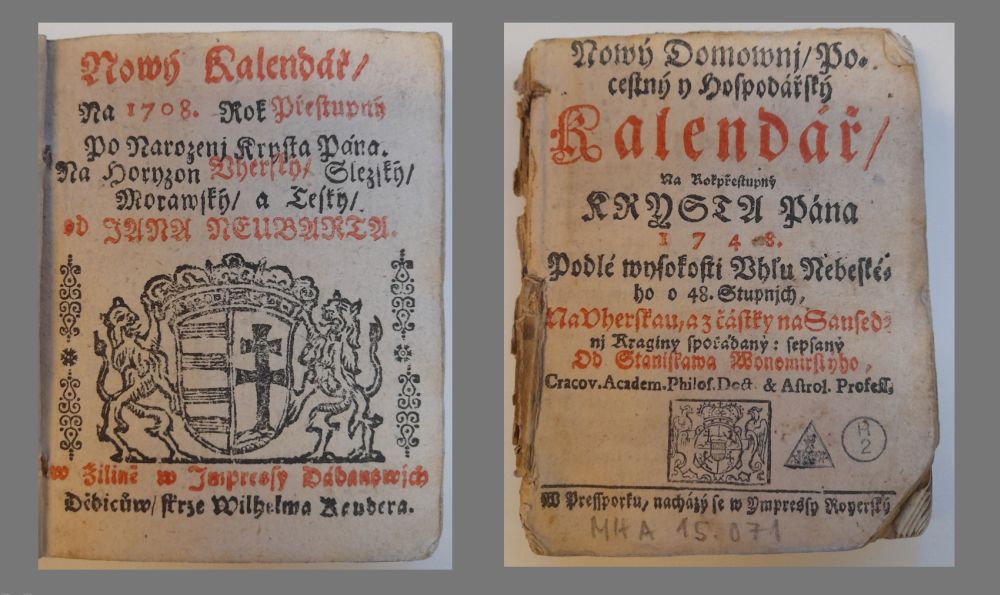 Nowý Kalendář/
Na 1708. Rok Přestupný
Po Narozenj Krysta Pána.
Na Horyzon Vherský/ Slezský/
Morawský/ a Český/
od JANA NEUBARTA.
w Žilině w Jmpressy Dádanowých
Dědicůw/ skrze Wilhelma Reudera.
Nowý Domownj/ Po-
cestný y Hospodářský
Kalendář/
Na Rokpřestupný
KRYSTA Pána
1748.
Podlé wysokosti Vhlu Nebeské-
ho o 48. Stupnjch,
Na Vherskau, a z částky na Saused-
nj Kraginy spořádaný: sepsaný
Od Stanislawa
Cracov. Academ. Philos. Doct. & Astrol. Profess.
H
2
W Pressporku, nacházý se w Ympressy Royerský
MHA 15.071